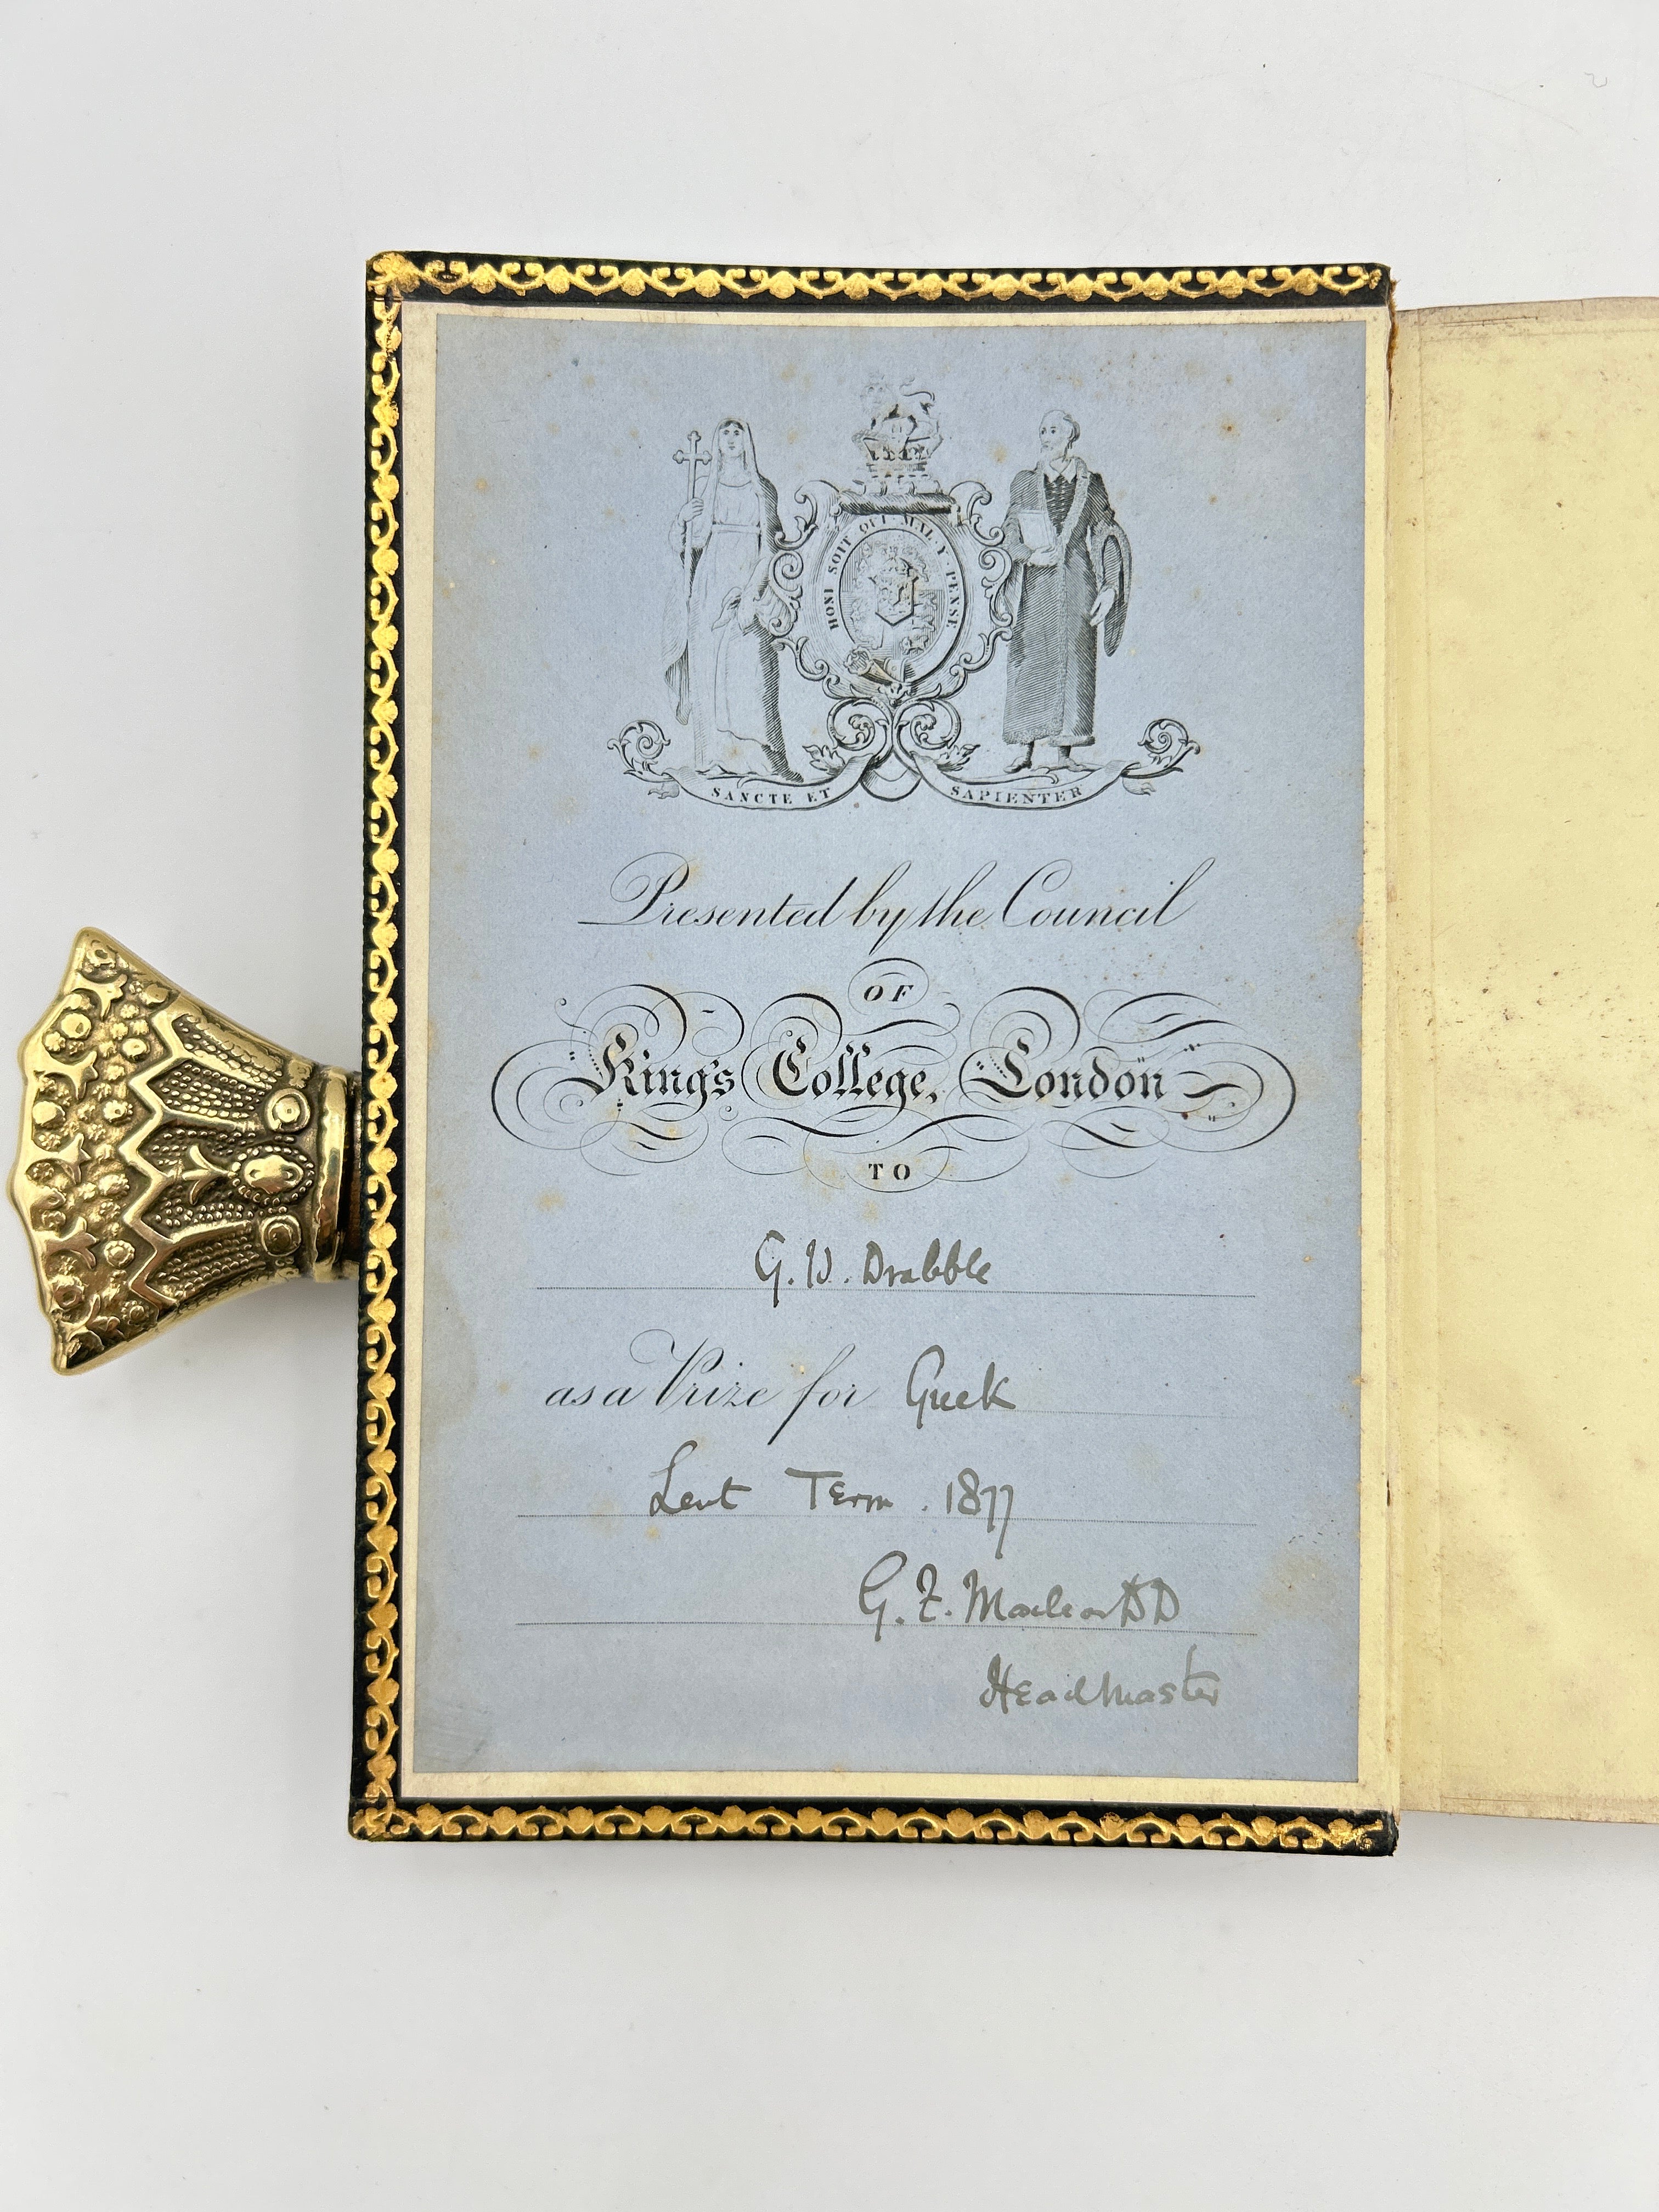 HONI SOIT QUI MAL Y PENSE
SANCTE ET SAPIENTER
Presented by the Council
OF
King's College, London
TO
G. W. Drabble
as a Prize for Greek
Lent Term. 1877
G. F. Maclear DD
Head Master